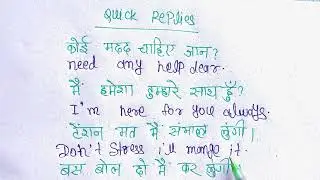 Quick Replies
कोई मदद चाहिए जान?
need any help dear.
मैं हमेशा तुम्हारे साथ हुँ?
I'm here for you always.
टेंशन मत मैं संभाल लुंगी।
Don't stress i'll mange it.
बस बोल दो मैं कर लुंगी